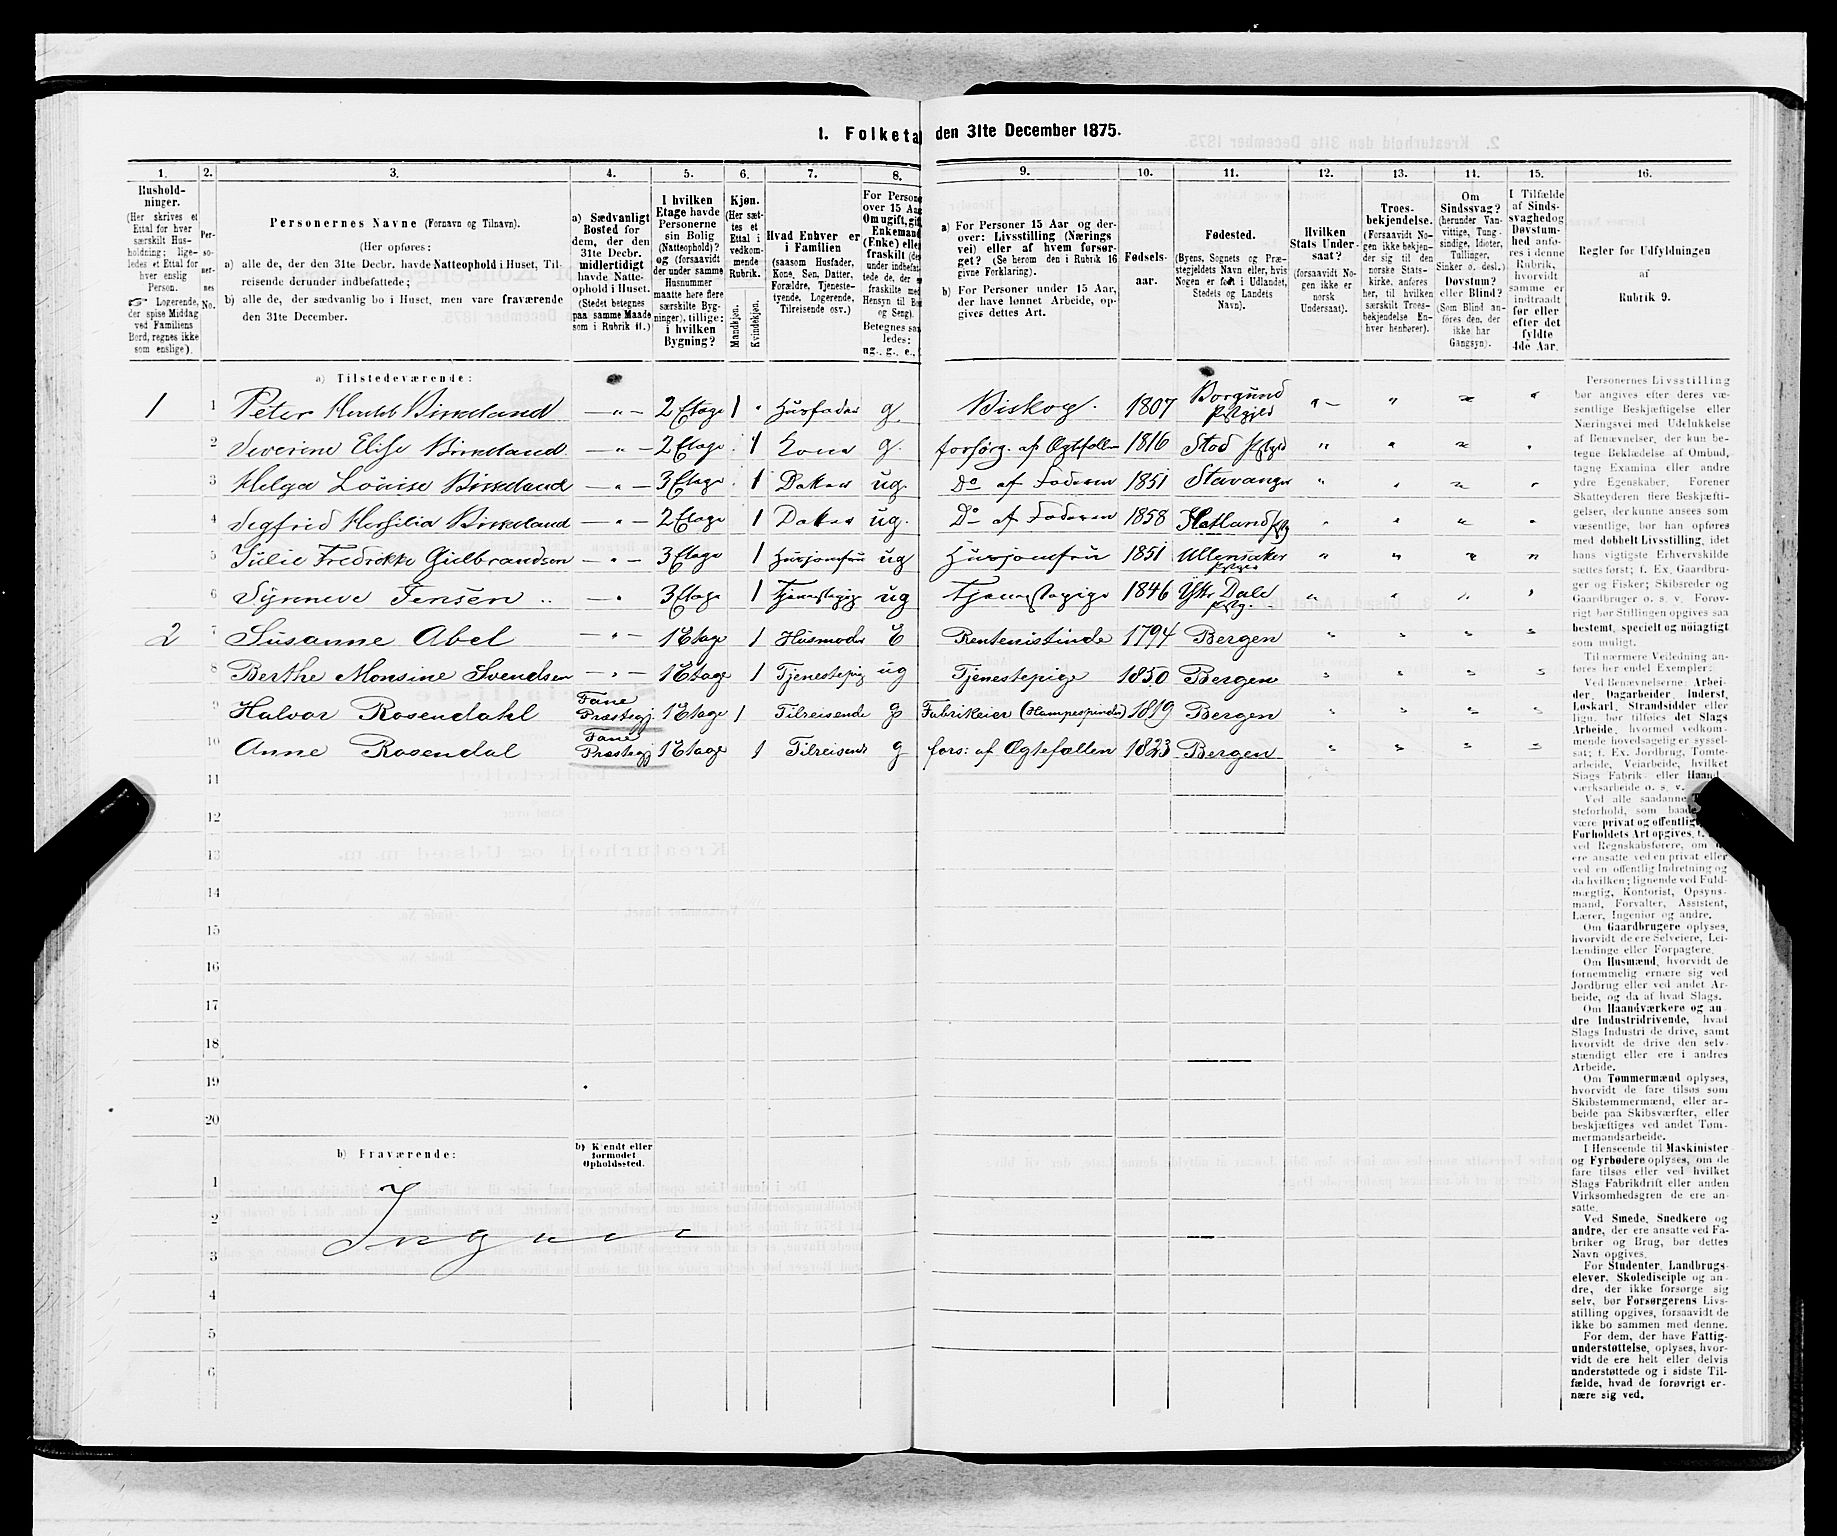 1. Folketal den 31te December 1875.
1. 2. 3. 4. 5. 6. 7. 8. 9. 10. 11. 12. 13. 14. 15. 16.
Hushold-
ninger.
(Her skrives et
Ettal for hver
særskilt Hus-
holdning; lige-
ledes et Ettal for
hver enslig
Person.
☞ Logerende,
der spise Middag
ved Familiens
Bord, regnes ikke
som enslige).
Per-
so-
ner-
nes
No.
Personernes Navne (Fornavn og Tilnavn).
(Her opføres:
a) alle de, der den 31te Decbr. havde Natteophold i Huset, Til-
reisende derunder indbefattede;
b) alle de, der sædvanlig bo i Huset, men vare fraværende
den 31te December.
a) Sædvanligt
Bosted for
dem, der den
31te Decbr.
midlertidigt
havde Natte-
ophold i Huset.
(Stedet betegnes
paa samme Maade
som i Rubrik 11.)
I hvilken
Etage havde
Personerne
sin Bolig
(Natteophold)?
og (forsaavidt
der under samme
Husnummer
maatte høre flere
særskilte Byg-
ninger), tillige:
i hvilken
Bygning?
Kjøn.
(Her sæt-
tes et
Ettal i
vedkom-
mende
Rubrik.
Mandkjøn.
Kvindekjøn.
Hvad Enhver er
i Familien
(saasom Husfader,
Kone, Søn, Datter,
Forældre, Tjeneste-
tyende, Logerende,
Tilreisende osv.)
For Persone
over 15 Aar
Om ugift, gif
Enkemand
(Enke) elle
fraskilt (de
under indbefat
tede de, der e
fraskilte med
Hensyn til Bo
og Seng).
Betegnes saa
ledes:
ug., g., e.,
a) For Personer 15 Aar og der-
over: Livsstilling (Nærings
vei) eller af hvem forsør-
get? (Se herom den i Rubrik 16
givne Forklaring).
b) For Personer under 15 Aar,
der have lønnet Arbeide, op-
gives dettes Art.
Fødsels-
aar.
Fødested.
(Byens, Sognets og Præ-
stegjeldets Navn eller, hvis
Nogen er født i Udlandet,
Stedets og Landets
Navn).
Hvilken
Stats Under-
saat?
(forsaavidt No-
gen ikke er
norsk
Undersaat).
Troes-
bekjendelse.
(Forsaavidt No-
gen ikke bekjen-
der sig til den
norske Stats-
kirke, anføres
her, til hvilken
særskilt Troes-
bekjendelse En-
hver henhører).
Om
Sindssvag?
(herunder Van-
vittige, Tung-
sindige, Idioter,
Tullinger,
Sinker o. desl.)
Døvstum?
eller Blind?
(Som Blind an-
føres den, der
ikke har
Gangsyn).
I Tilfælde
af Sinds-
svaghed og
Døvstum-
hed anfø-
res i denne
Rubrik,
hvorvidt
samme er
indtraadt
før eller
efter det
fyldte
4de Aar.
Regler for Udfyldningen
af
Rubrik 9.
a) Tilstedeværende:
1 1 Peter Birkeland — " — 2 Etage 1 " Husfader g Biskop. 1807 Borgund Pstgjeld
2 Severine Elise Birkeland — " — 2 Etage 1 Kone g. forsørg. af Ægtefællen 1816 Stod Pstgjd
3 Helga Lovise Birkeland — " — 3 Etage 1 Datter ug. Do af Faderen 1851 Stavanger
4 Segfrid Hersilia Birkeland — " — 2 Etage 1 Datter ug. Do af Faderen 1858
5 Julie Fredrikke Gulbrandsen — " — 3 Etage 1 Husjomfru ug Husjomfru 1851 Ullensaker
6 Synneve Jensen — " 3 Etage 1 Tjenestepige ug Tjenestepige 1846 Ytre Dale
2 7 Susanne Abel — " — 1 Etage 1 Husmoder E Rentenistinde 1794 Bergen
8 Berthe Monsine Svendsen — " — 1 Etage 1 Tjenestepig ug Tjenestepige 1850 Bergen
9 Halvor Rosendahl Fane Præstegj. 1 Etage 1 Tilreisende g Fabrikeier (Hampespinder) 1819 Bergen
10 Anne Rosendal Fane Præstegj 1 Etage 1 Tilreisende g fors: af Ægtefællen 1823 Bergen
11
12
13
14
15
16
17
18
19
20
b) Fraværende:
b) Kjendt eller
formodet
Opholdssted.
1
2
Ingen
3
4
5
6
Personernes Livsstilling
bør angives efter deres væ-
sentlige Beskjæftigelse eller
Næringsvei med Udelukkelse
af Benævnelser, der kun be-
tegne Beklædelse af Ombud,
tagne Examina eller andre
ydre Egenskaber. Forener
Skatteyderen flere Beskjæfti-
gelser, der kunne ansees som
væsentlige, bør han opføres
med dobbelt Livsstilling, idet
hans vigtigste Erhvervskilde
sættes først; f. Ex. Gaardbru-
ger og Fisker; Skibsreder og
Gaardbruger o. s. v. Forøv-
rigt bør Stillingen opgives saa
bestemt, specielt og nøiagtigt
som muligt.
Til nærmere Veiledning an-
føres her endel Exempler:
Ved Benævnelserne: Arbei-
der, Dagarbeider, Inderst,
Løskarl, Strandsidder eller
lign. bør tilføies det Slags
Arbeide, hvormed vedkom-
mende hovedsagelig er syssel-
sat; f. Ex. Jordbrug, Tomte-
arbeide, Veiarbeide, hvilket
Slags Fabrik- eller Haand-
værksarbeide o. s. v.
Ved alle saadanne
steforhold, som baa
være privat og offentlig
Forholdets Art opgives,
ved Regnskabsførere, om
ere ansatte ved en privat eller
ved en offentlig Indretning og
da hvilken; lignende ved Fuld-
mægtig, Kontorist, Opsyns-
mand, Forvalter, Assistent,
Lærer, Ingeniør og andre.
Om Gaardbrugere oplyses,
hvorvidt de ere Selveiere, Lei-
lændinge eller Forpagtere.
Om Husmænd, hvorvidt de
fornemmelig ernære sig ved
Jordbrug eller ved andet Ar-
beide, og da af hvad Slags.
Om Haandværkere og an-
dre Industridrivende, hvad
Slags Industri de drive, samt
hvorvidt de drive den selv-
stændigt eller ere i andres
Arbeide.
Om Tømmermænd oplyses,
hvorvidt de fare tilsøs som
Skibstømmermænd, eller ar-
beide paa Skibsværfter, eller
beskjæftiges ved andet Tøm-
mermandsarbeide.
I Henseende til Maskinister
og Fyrbødere oplyses, om de
fare tilsøs eller ved hvilket
Slags Fabrikdrift eller anden
Virksomhedsgren de ere an-
satte.
Ved Smede, Snedkere og
andre, der ere ansatte ved Fa-
briker og Brug, bør dettes
Navn opgives.
For Studenter, Landbrugs-
elever, Skoledisciple og an-
dre, der ikke forsørge sig
selv, bør Forsørgerens Livs-
stilling opgives, forsaavidt de
ikke bo sammen med denne.
For dem, der have Fattig-
understøttelse, oplyses, hvor-
vidt de ere helt eller delvis
understøttede og i sidste Til-
fælde, hvad de forøvrigt er-
nære sig ved.